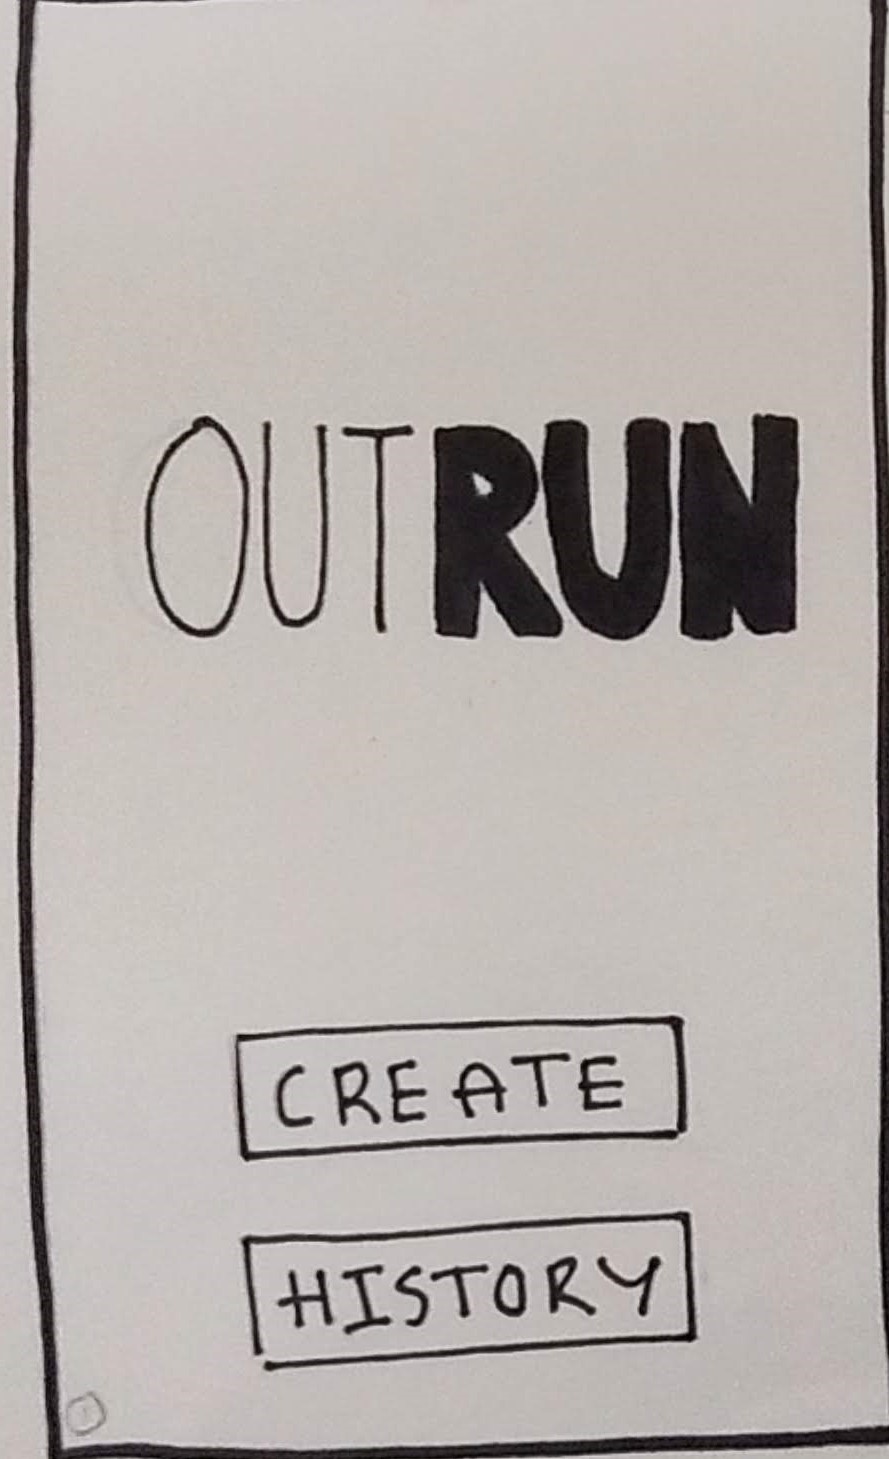 OUTRUN
CREATE
HISTORY
1